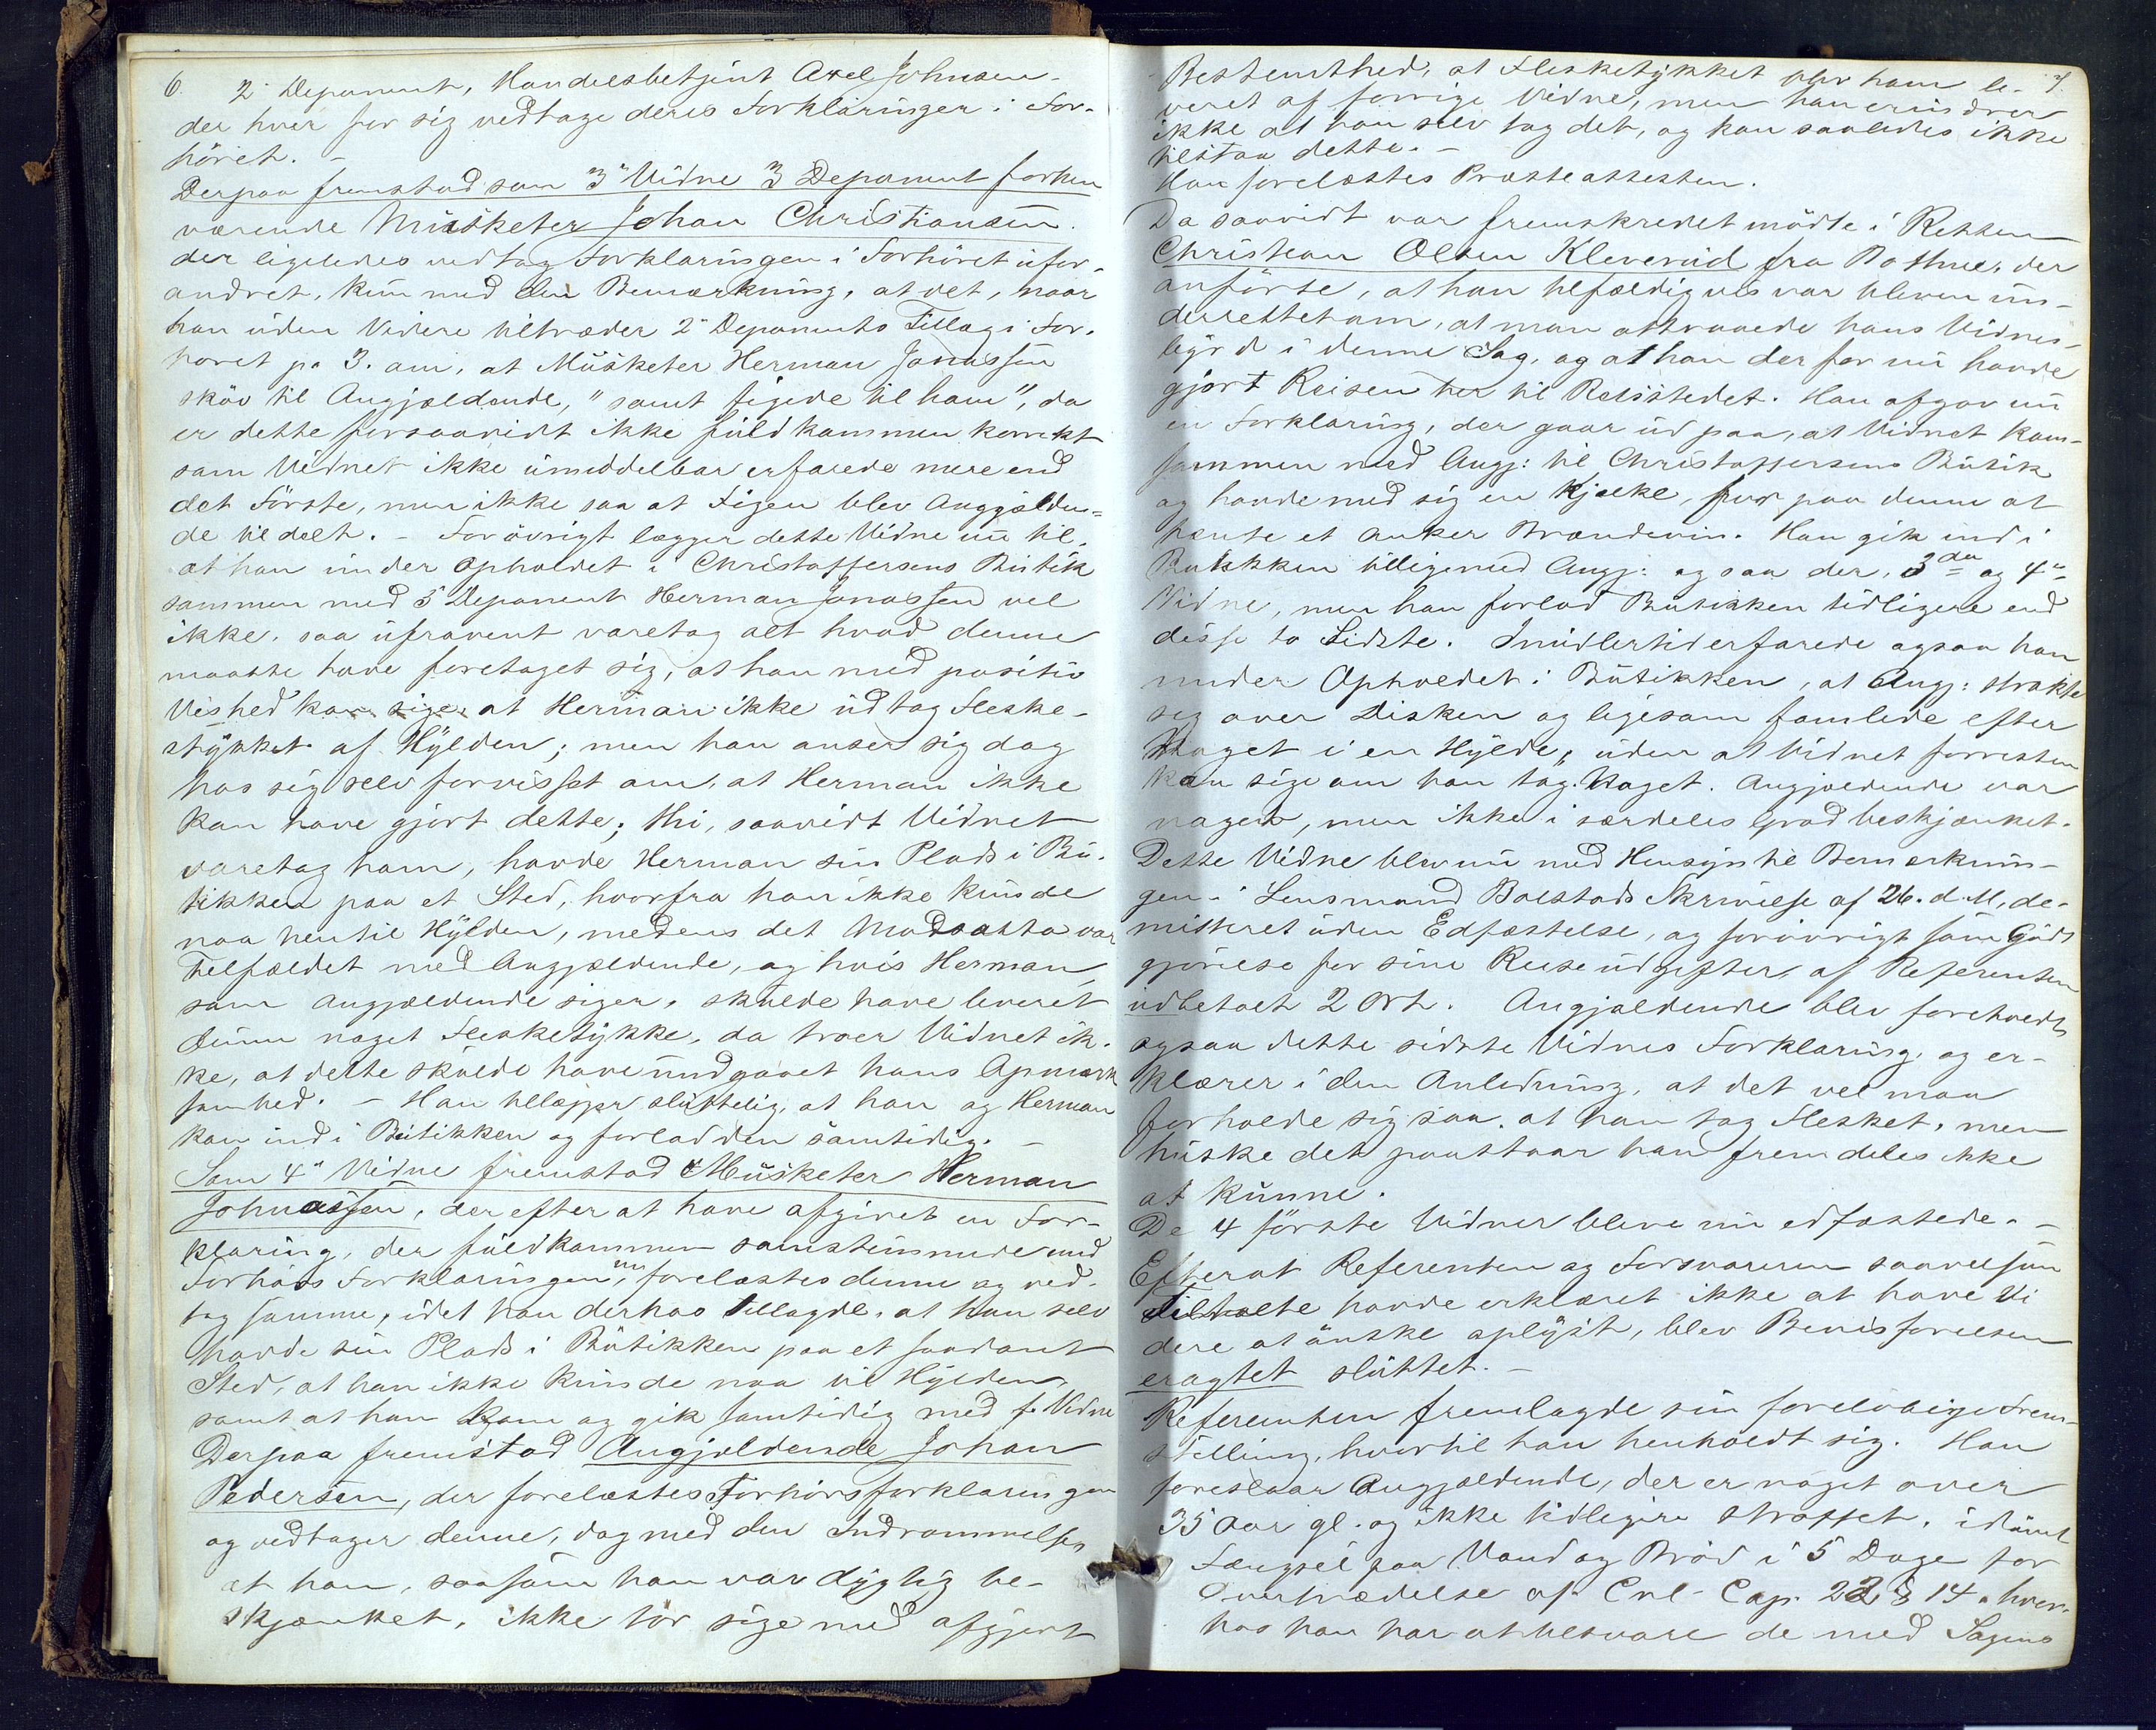 6.
2' Deponent, Handelsbetjent Axel Johnsen -
der hver for sig vedtage deres Forklaringer i For-
höret. -
Derpaa fremstod som 3' Vidne 3 Deponent forhen
værende Musketer Johan Christiansen.
der ligeledes vedtog Forklaringen i Forhöret ufor-
andret, kun med den Bemærkning, at det, naar
han uden Videre tiltræder 2' Deponents Tillæg i For-
höret p. 3. om, at Musketer Herman Jonassen
sköv til Angjældende, "samt figede til ham", da
er dette forsaavidt ikke fuldkommen korrekt
som Vidnet ikke umiddelbar erfarede mere end
det Förste, men ikke saa at Figen blev Anggjælden-
de tildelt. - Forövrigt lægger dette Vidne nu til,
at han under Opholdet i Christoffersens Butik
sammen med 5 Deponent Herman Jonassen vel
ikke saa ufravent varetog alt hvad denne
maatte have foretaget sig, at han med positiv
Vished kan sige, at Herman ikke udtog Fleske-
stykket af Hylden; men han anser sig dog
hos sig selv forvisset om, at Herman ikke
kan have gjort dette; thi, saavidt Vidnet
varetog ham, havde Herman sin Plads i Bu-
tikken paa et Sted, hvorfra han ikke kunde
naa hen til Hylden, medens det Modsatte var
Tilfældet med Angjældende, og hvis Herman,
som Angjældende siger, skulde have leveret
denne noget Fleskestykke, da troer Vidnet ik-
ke, at dette skulde have undgaaet hans Opmærk
somhed. - Han tillægger sluttelig, at han og Herman
kom ind i Butikken og forlod den samtidig. -
Som 4' Vidne fremstod Musketer Herman
Johnassen, der efter at have afgivet en For-
klaring, der fuldkommen samstemmede med
Forhörs Forklaringen, forelæstes denne og ved-
tog samme, idet han derhos tillagde, at han selv
havde sin Plads i Butikken paa et saadant
Sted, at han ikke kunde naa til Hylden,
samt at han kom og gik samtidig med f. Vidne
Derpaa fremstod Angjældende Johan
Pedersen, der forelæstes Forhörsforklaringen
og vedtager denne, dog med den Indrømmelse,
at han, saasom han var dygtig be-
skjænket, ikke tör sige med afgjort
7.
Bestemthed, at Fleskestykket blev ham le-
veret af forrige Vidne, men han erindrer
ikke at han selv tog det, og kan saaledes ikke
tilstaa dette. -
Han forelæstes Præsteattesten.
Da saavidt var fremskredet mödte i Retten
Christian Olsen Kleverud fra Botne, der
anförte, at han tilfældigvis var bleven un-
derrettet om, at man attraaede hans Vidnes-
byrd i denne Sag, og at han derfor nu havde
gjort Reisen her til Retsstedet. Han afgav nu
en Forklaring, der gaar ud paa, at Vidnet kom
sammen med Angj: til Christoffersens Butik
og havde med sig en Kjælke, for paa denne at
hente et Anker Brændevin. Han gik ind i
Butikken tilligemed Angj: og saa der, 3die og 4'
Vidne, men han forlod Butikken tidligere end
disse to Sidste. Imidlertid erfarede ogsaa han
under Opholdet i Butikken, at Angj: strakte
sig over Disken og ligesom famlede efter
Noget i en Hylde, uden at Vidnet forresten
kan sige om han tog Noget. Angjældende var
nogen, men ikke i særdeles Grad beskjænket.
Dette Vidne blev nu med Hensyn til Bemærknin-
gen i Lensmand Bolstads Skrivelse af 26. d. M, de-
mitteret uden Edfæstelse, og forövrigt som God-
gjörelse for sine Reiseudgifter af Referenten
udbetalt 2 Ort. Angjældende blev foreholdt
ogsaa dette sidste Vidnes Forklaring, og er-
klærer i den Anledning, at det vel maa
forholde sig saa, at han tog Flesket, men
huske det paastaar han fremdeles ikke
at kunne.
De 4 förste Vidner bleve nu edfæstede. -
Efterat Referenten og Forsvareren saavelsom
Tiltalte havde erklæret ikke at have Vi
dere at önske oplyst, blev Bevisförelsen
eragtet sluttet. -
Referenten fremlagde sin forelöbige Frem-
stilling, hvortil han henholdt sig. Han
foreslaar Angjældende, der er noget over
35 Aar gl. og ikke tidligere straffet, idömt
Fængsel paa Vand og Bröd i 5 Dage for
Overtrædelse af Crl- Cap. 22 § 14, hver-
hos han har at tilsvare de med Sagens